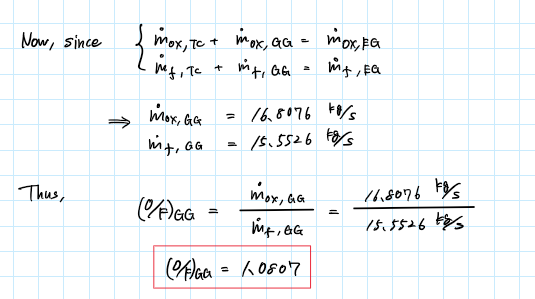 Now, since { ṁox,TC + ṁox,GG = ṁox,EG
ṁf,TC + ṁf,GG = ṁf,EG
⇒ ṁox,GG = 16.8076 kg/s
ṁf,GG = 15.5526 kg/s
Thus,
(O/F)GG = ṁox,GG / ṁf,GG = 16.8076 kg/s / 15.5526 kg/s
(O/F)GG = 1.0807